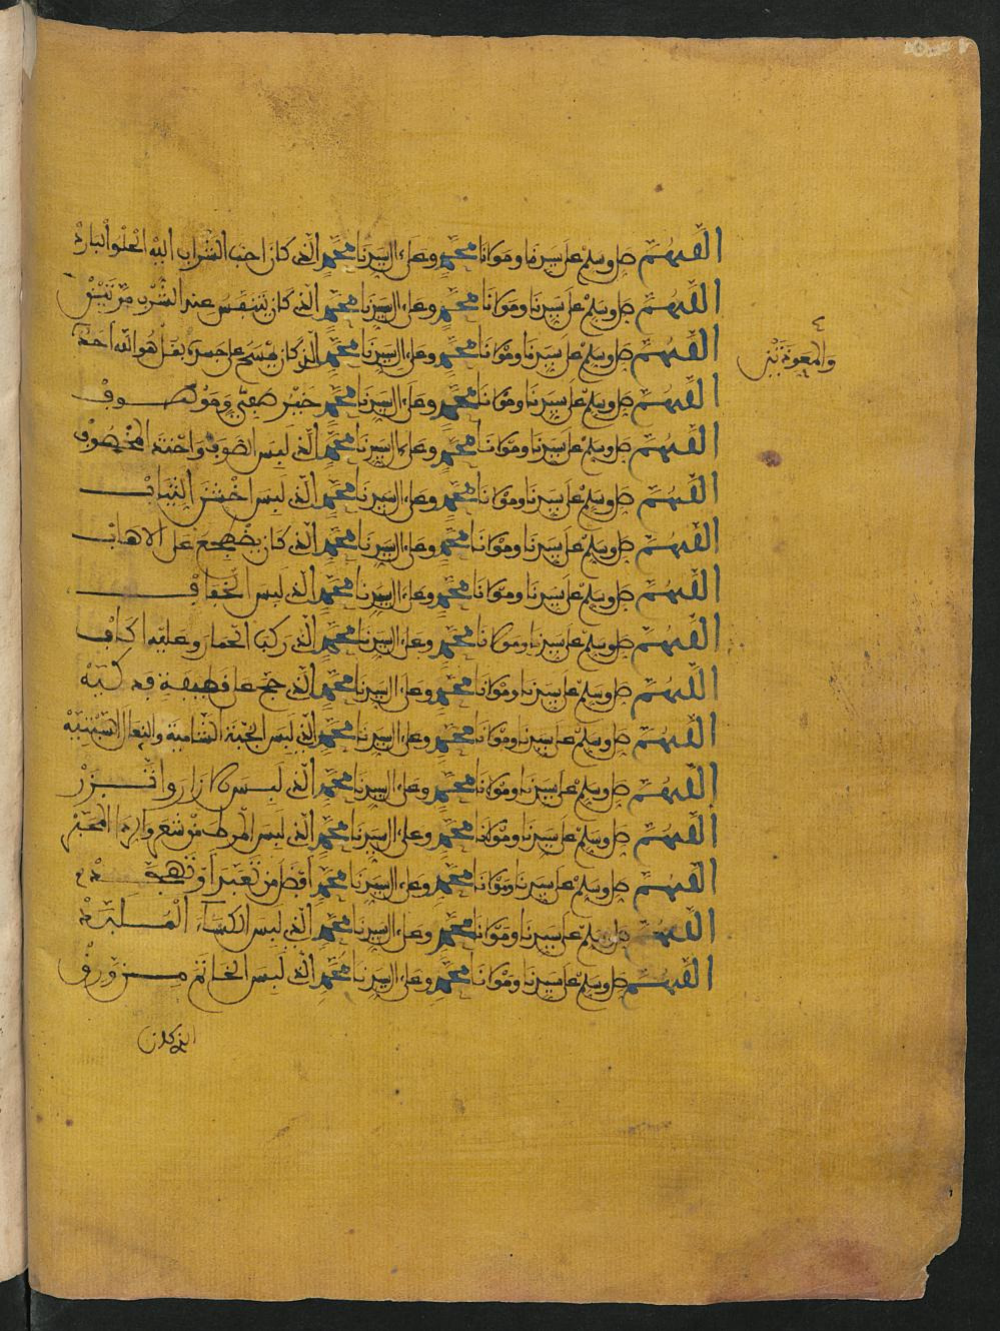 اللهم صل وسلم على سيدنا ومولانا محمد وعلى ءال سيدنا محمد الذي كان احب الشراب اليه الحلو البارد
اللهم صل وسلم على سيدنا ومولانا محمد وعلى ءال سيدنا محمد الذي كان يتنفس عند الشرب مرتين
اللهم صل وسلم على سيدنا ومولانا محمد وعلى ءال سيدنا محمد الذي كان يمسح على جسده بقل هو الله احد
والمعوذتين
اللهم صل وسلم على سيدنا ومولانا محمد وعلى ءال سيدنا محمد خير صفي وموصوف
اللهم صل وسلم على سيدنا ومولانا محمد وعلى ءال سيدنا محمد الذي لبس الصوف واحتذى المخصوف
اللهم صل وسلم على سيدنا ومولانا محمد وعلى ءال سيدنا محمد الذي لبس اخشن الثياب
اللهم صل وسلم على سيدنا ومولانا محمد وعلى ءال سيدنا محمد الذي كان يضطجع على الاهاب
اللهم صل وسلم على سيدنا ومولانا محمد وعلى ءال سيدنا محمد الذي لبس الخفاف
اللهم صل وسلم على سيدنا ومولانا محمد وعلى ءال سيدنا محمد الذي ركب الحمار وعليه اكاف
اللهم صل وسلم على سيدنا ومولانا محمد وعلى ءال سيدنا محمد الذي حج على قطيفة فدكية
اللهم صل وسلم على سيدنا ومولانا محمد وعلى ءال سيدنا محمد الذي لبس الجبة الشامية والنعال السبتية
اللهم صل وسلم على سيدنا ومولانا محمد وعلى ءال سيدنا محمد الذي لبس الازار واتزر
اللهم صل وسلم على سيدنا ومولانا محمد وعلى ءال سيدنا محمد الذي لبس المرط من شعر والردا المحبر
اللهم صل وسلم على سيدنا ومولانا محمد وعلى ءال سيدنا محمد افضل من تعبد او تهجد
اللهم صل وسلم على سيدنا ومولانا محمد وعلى ءال سيدنا محمد الذي لبس الكساء الملبد
اللهم صل وسلم على سيدنا ومولانا محمد وعلى ءال سيدنا محمد الذي لبس الخاتم من ورق
الذي كان